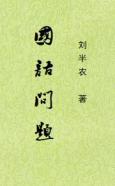 國語問題
刘半农 著